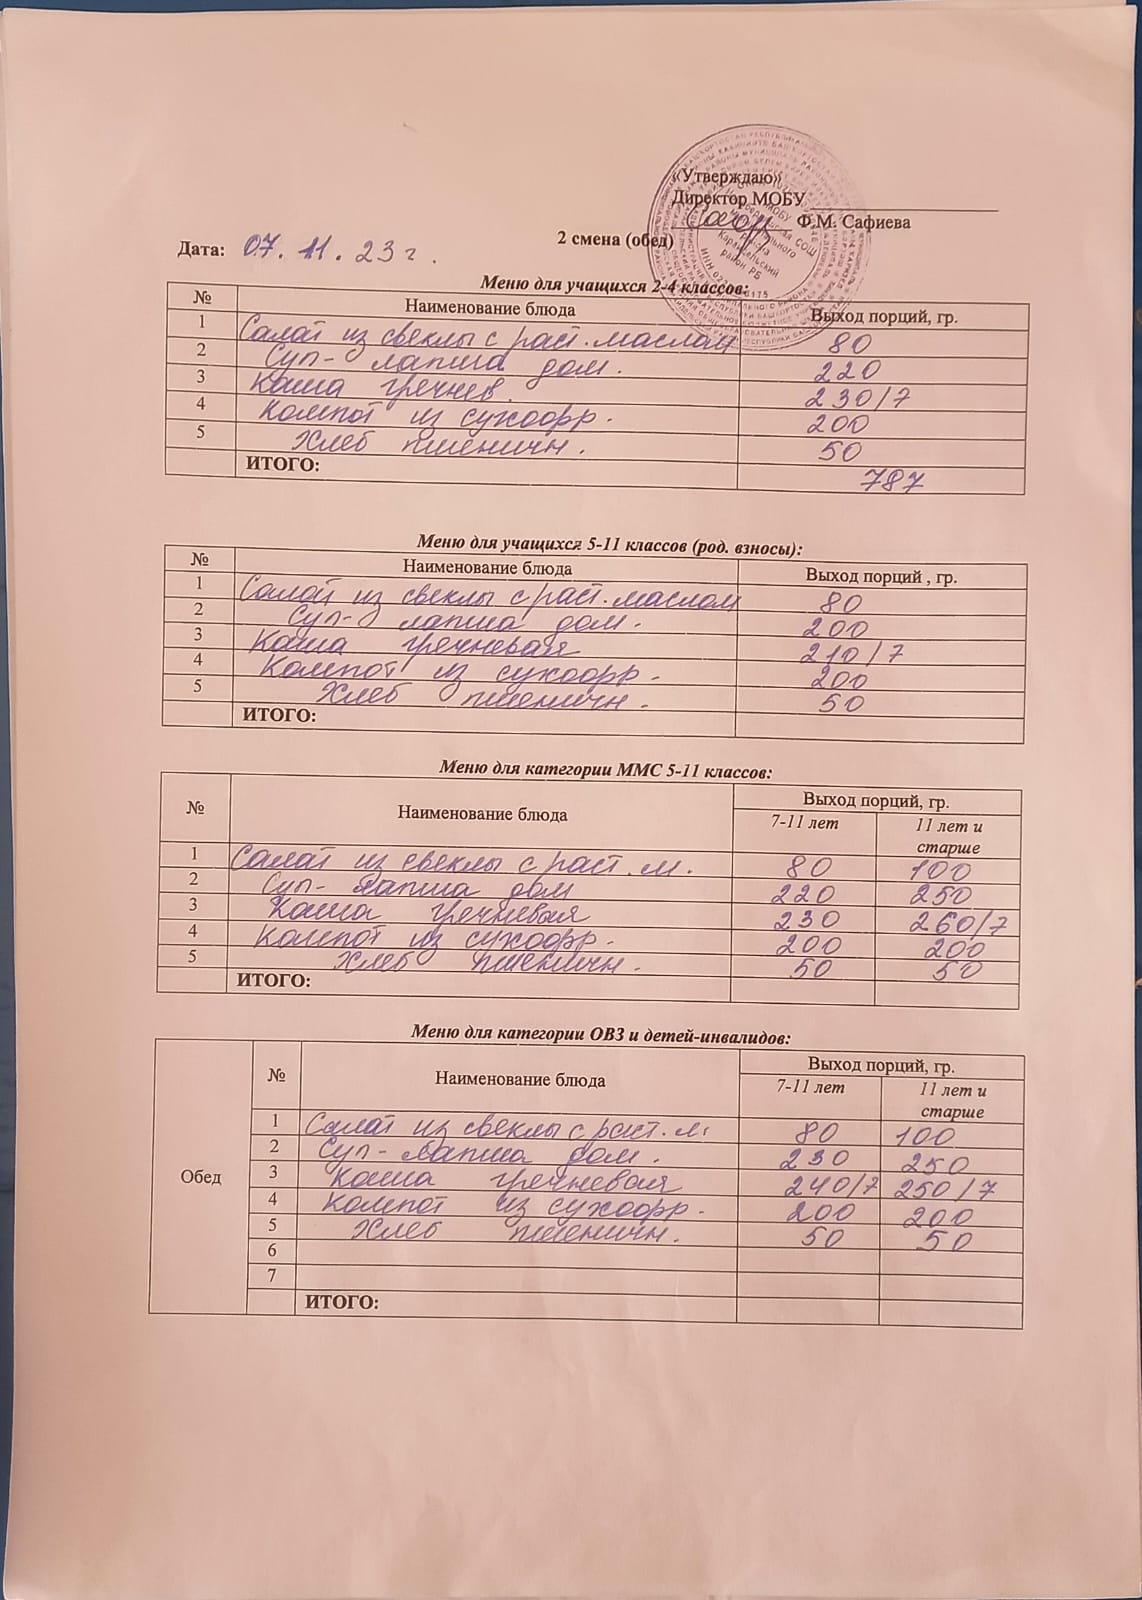 «Утверждаю»
Директор МОБУ
Ф.М. Сафиева
2 смена (обед)
Дата: 07.11.23 г.
Меню для учащихся 2-4 классов:
№ Наименование блюда Выход порций, гр.
1 Салат из свеклы с раст. маслом 80
2 Суп- лапша дом. 220
3 Каша гречнев. 230/7
4 Компот из сухофр. 200
5 Хлеб пшеничн. 50
ИТОГО: 787
Меню для учащихся 5-11 классов (род. взносы):
№ Наименование блюда Выход порций , гр.
1 Салат из свеклы с раст. маслом 80
2 Суп- лапша дом. 200
3 Каша гречневая 210/7
4 Компот из сухофр. 200
5 Хлеб пшеничн. 50
ИТОГО:
Меню для категории ММС 5-11 классов:
№ Наименование блюда Выход порций, гр.
7-11 лет 11 лет и старше
1 Салат из свеклы с раст. м. 80 100
2 Суп- лапша дом 220 250
3 Каша гречневая 230 260/7
4 Компот из сухофр. 200 200
5 Хлеб пшеничн. 50 50
ИТОГО:
Меню для категории ОВЗ и детей-инвалидов:
Обед № Наименование блюда Выход порций, гр.
7-11 лет 11 лет и старше
1 Салат из свеклы с раст. м. 80 100
2 Суп- лапша дом. 230 250
3 Каша гречневая 240/7 250/7
4 Компот из сухофр. 200 200
5 Хлеб пшеничн. 50 50
6
7
ИТОГО: